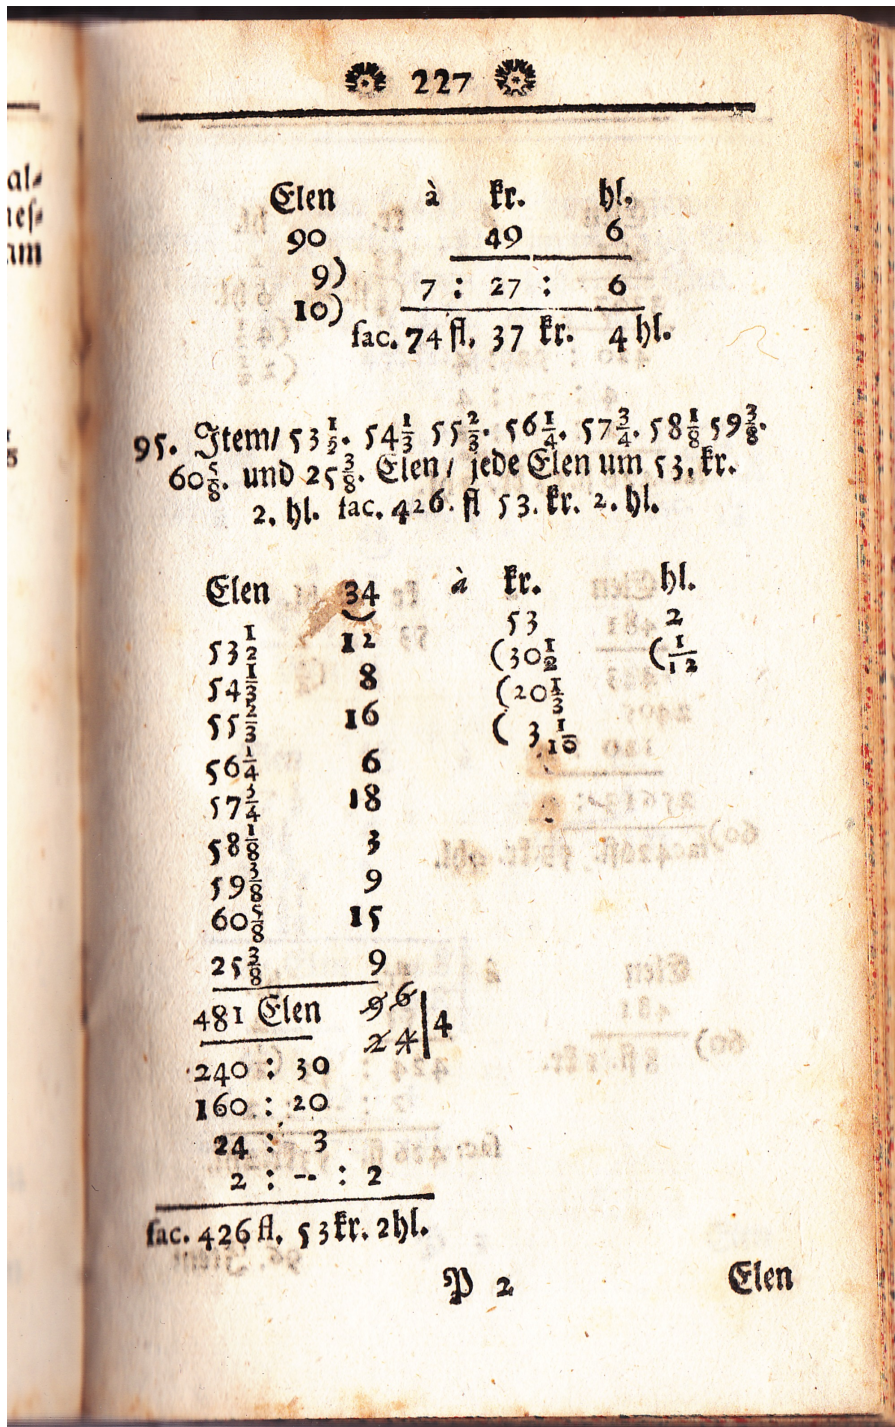 227
Elen à kr. hl.
90 49 6
9)
7 : 27 : 6
10)
fac. 74 fl. 37 kr. 4 hl.
95. Item/ 53 1/2. 54 1/3 55 2/3. 56 1/4. 57 3/4. 58 1/8 59 3/8.
60 5/8. und 25 3/8. Elen/ jede Elen um 53. kr.
2. hl. fac. 426. fl 53. kr. 2. hl.
Elen 34 à kr. hl.
53 2
53 1/2 12 (30 1/2 (1/12
54 1/3 8 (20 1/3
55 2/3 16 ( 3 1/10
56 1/4 6
57 3/4 18
58 1/8 3
59 3/8 9
60 5/8 15
25 3/8 9
481 Elen 96
24 | 4
240 : 30
160 : 20
24 : 3
2 : -- : 2
fac. 426 fl. 53 kr. 2 hl.
P 2 Elen